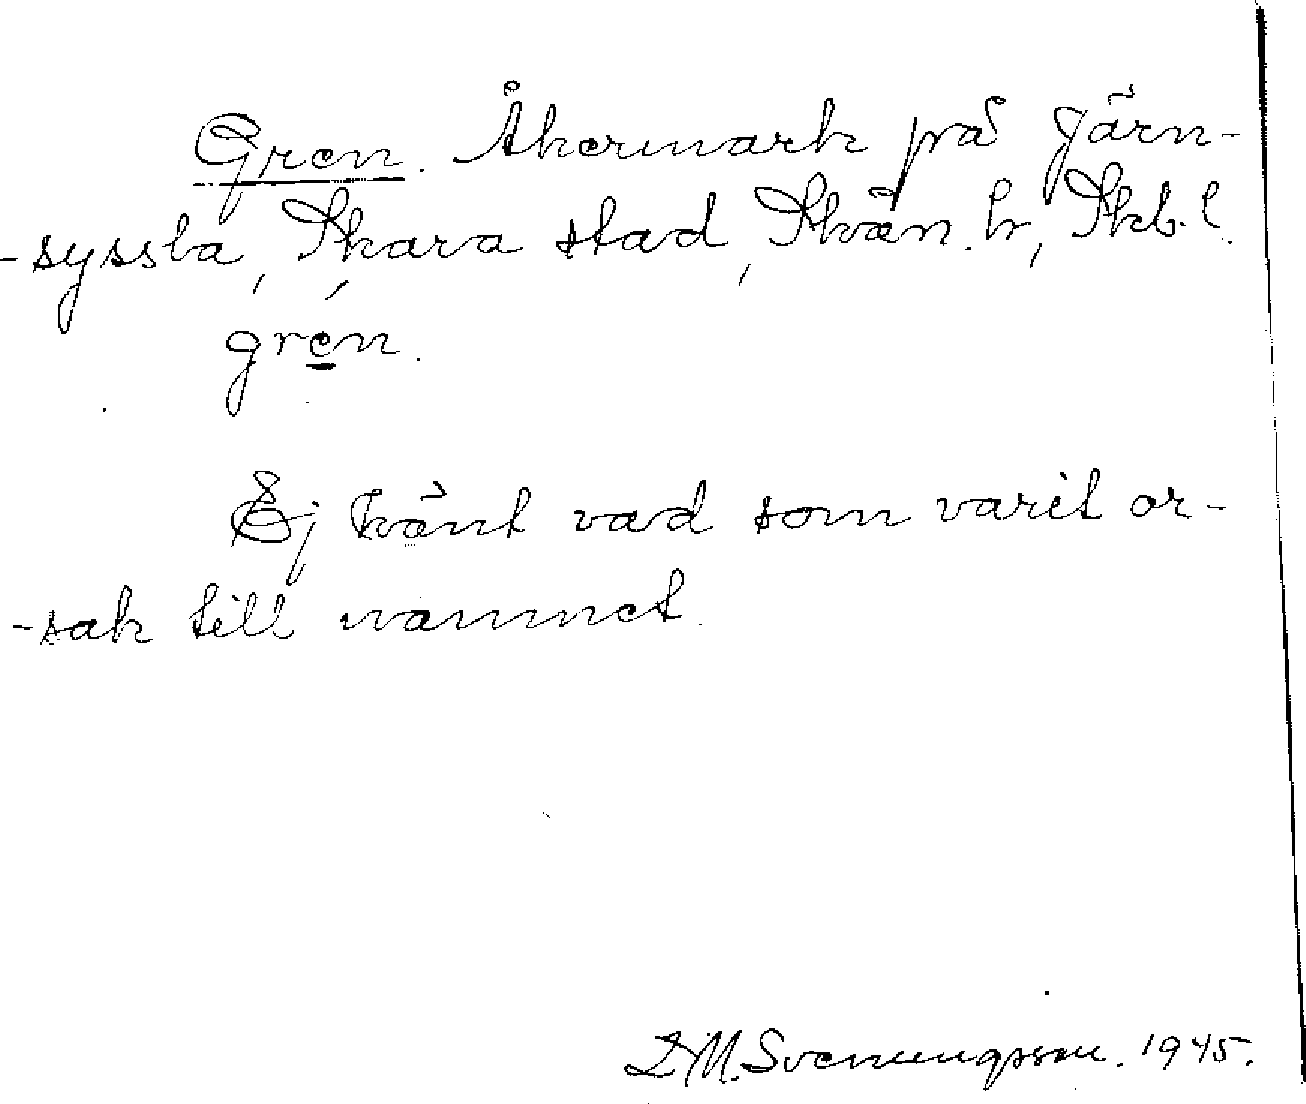 Gren. Åkermark på Järn-
-syssla, Skara stad, Skån. h, Skb. l.
grén.
Ej känt vad som varit or-
-sak till namnet.
D.M. Svenungsson. 1945.